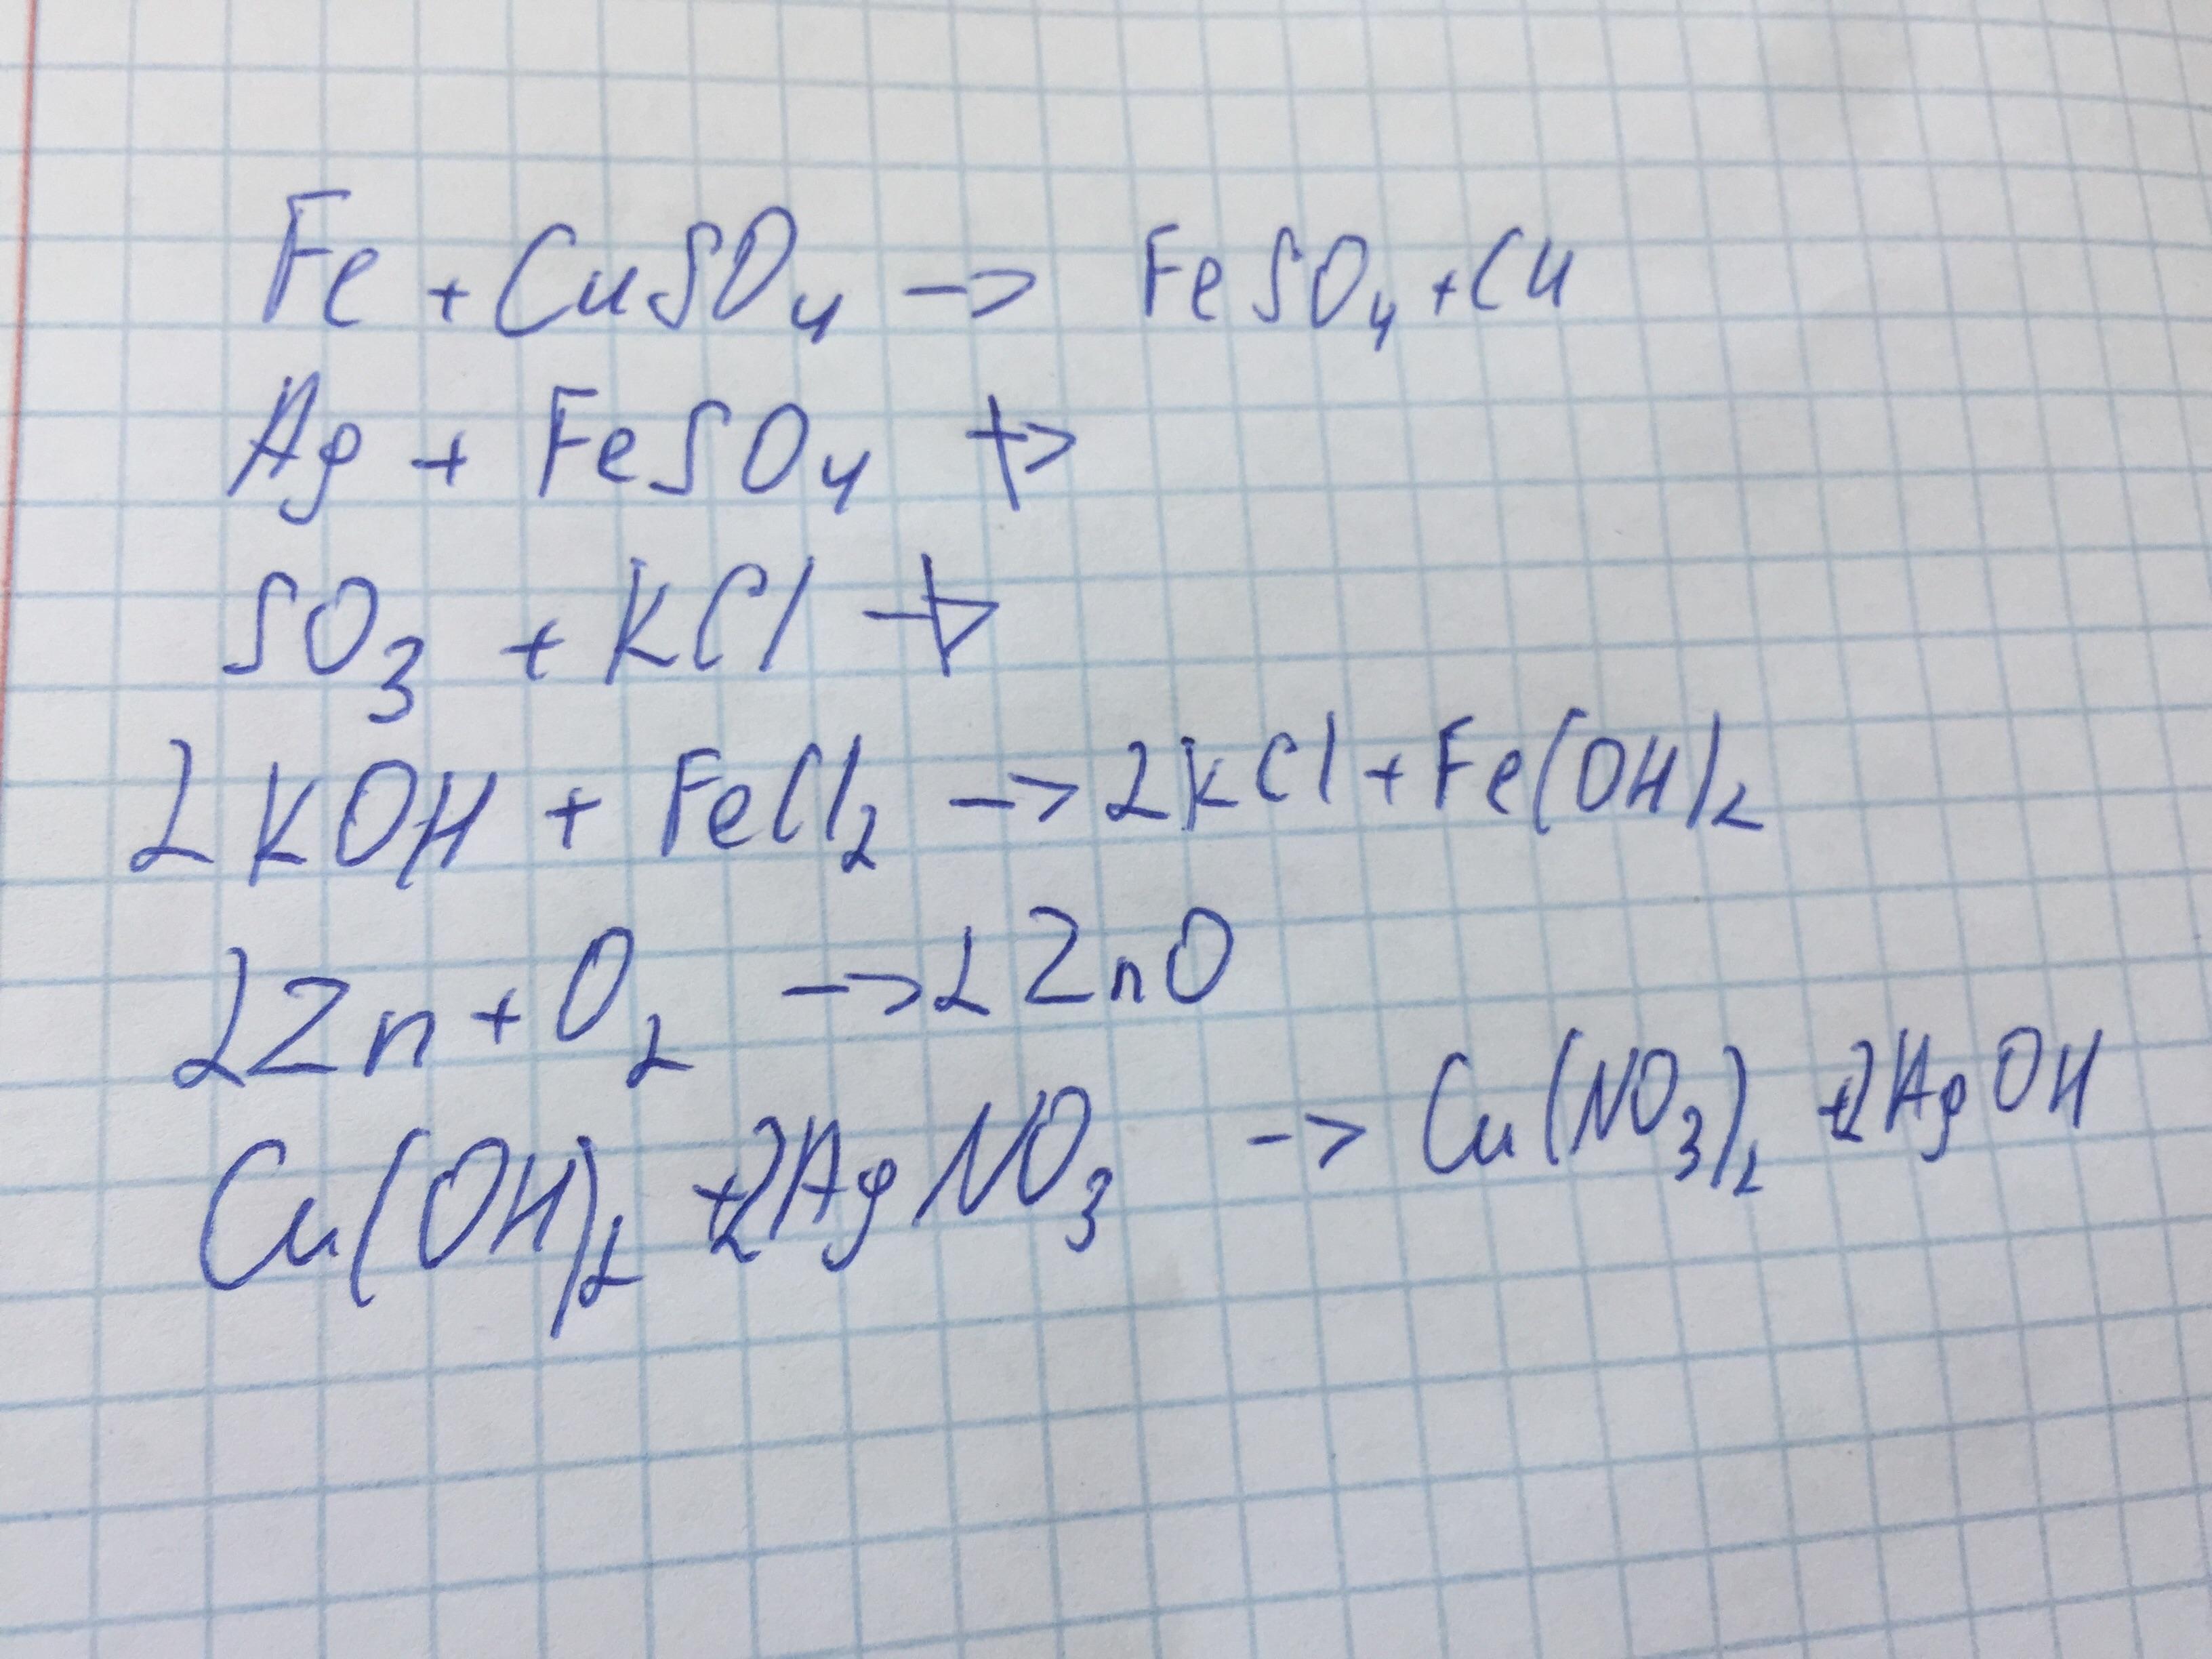 Fe + CuSO₄ → FeSO₄ + Cu
Ag + FeSO₄ ↛
SO₃ + KCl ↛
2KOH + FeCl₂ → 2KCl + Fe(OH)₂
2Zn + O₂ → 2ZnO
Cu(OH)₂ + 2AgNO₃ → Cu(NO₃)₂ + 2AgOH